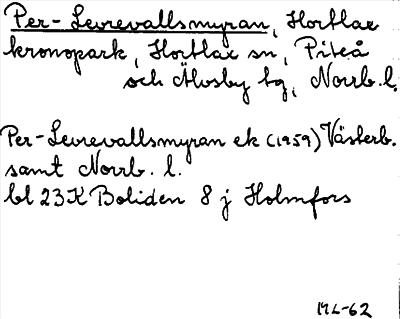 Per-Levrevallsmyran, Hortlax
kronopark, Hortlax sn, Piteå
och Älvsby tg, Norrb. l.
Per-Levrevallsmyran ek (1959) Västerb.
samt Norrb. l.
bl 23K Boliden 8 j Holmfors